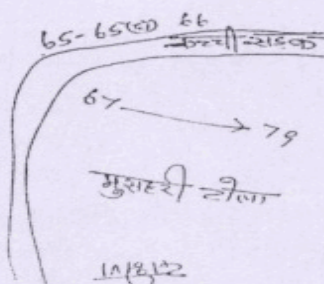 65-65(क) 66
कच्ची सड़क
67 → 79
मुसहरी टोला